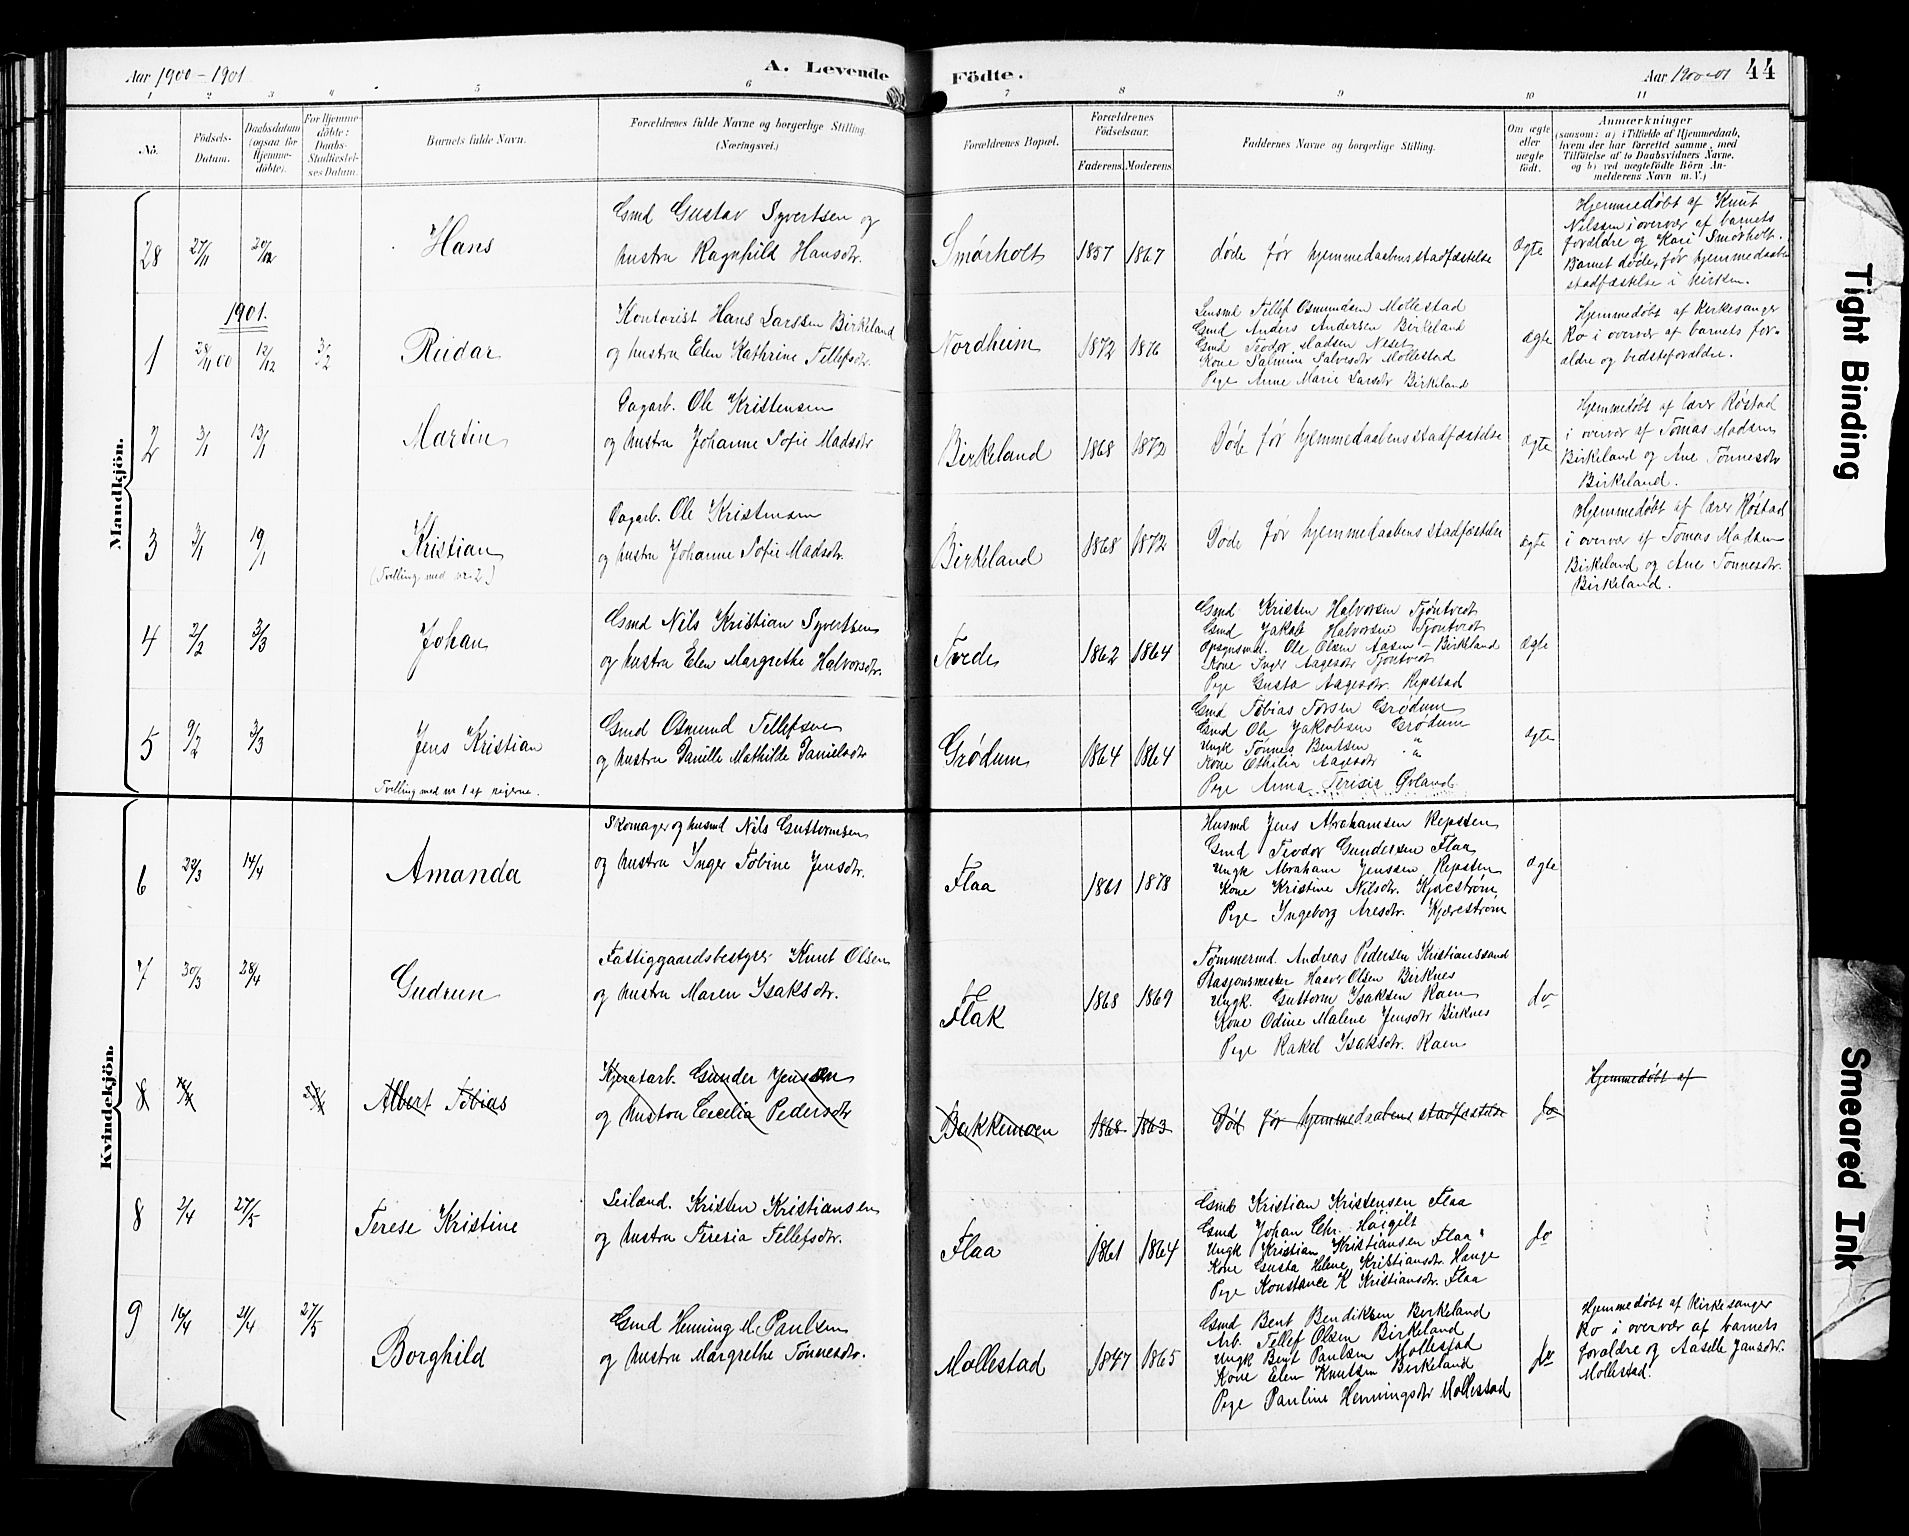 Aar 1900-1901
A. Levende
Födte.
Aar 1900-01
44
1 2 3 4 5 6 7 8 9 10 11
No.
Födsels-Datum.
Daabsdatum (ogsaa for Hjemme-döbte).
For Hjemme-döbte: Daabs-Stadfæstel-ses Datum.
Barnets fulde Navn.
Forældrenes fulde Navne og borgerlige Stilling.
(Næringsvei.)
Forældrenes Bopæl.
Forældrenes Födselsaar.
Faderens. Moderens.
Faddernes Navne og borgerlige Stilling.
Om ægte eller uægte födt.
Anmærkninger
(saasom: a) i Tilfælde af Hjemmedaab,
hvem der har forrettet samme, med
Tilföielse af to Daabsvidners Navne,
og b) ved uægtefödte Börn An-
melderens Navn m. V.)
Mandkjön.
28 27/11 20/12
Hans
Gmd Gustav Syvertsen og
hustru Ragnhild Hansdtr.
Smørholt 1857 1867
døde før hjemmedaabens stadfæstelse
Ægte
Hjemmedøbt af Knut
Nilssen i overvær af barnets
forældre og Kari Smørholt.
Barnet døde før hjemmedaabens
stadfæstelse i kirken.
1901.
1 28/11 00 12/12 3/2
Reidar
Kontorist Hans Larssen Birkeland
og hustru Elen Kathrine Tellefsdtr.
Nordheim 1872 1876
Lensmd Tellef Osmundsen Mollestad
Gmd Anders Andersen Birkeland
Gmd Teodor Madsen Neset
Kone Salmine Salvesdtr Mollestad
Pige Anne Marie Larsdtr Birkeland
Ægte
Hjemmedøbt af Kirkesanger
Ro i overvær af barnets for-
ældre og bedsteforældre.
2 3/1 13/1
Martin
Dagarb. Ole Kristensen
og hustru Johanne Sofie Madsdtr
Birkeland 1868 1872
Døde før hjemmedaabens stadfæstelse
Ægte
Hjemmedøbt af lærer Røstad
i overvær af Tomas Madsen
Birkeland og Ane Tønnesdtr
Birkeland.
3 3/1 19/1
Kristian
(Tvilling med nr 2.)
Dagarb. Ole Kristensen
og hustru Johanne Sofie Madsdtr.
Birkeland 1868 1872
Døde før hjemmedaabens stadfæstelse
Ægte
Hjemmedøbt af lærer Røstad
i overvær af Tomas Madsen
Birkeland og Ane Tønnesdtr.
Birkeland.
4 2/2 3/3
Johan
Gmd Nils Kristian Syvertsen
og hustru Elen Margrethe Halvorsdtr.
Tvede 1862 1864
Gmd Kristen Halvorsen Tjøntvedt
Gmd Jakob Halvorsen Tjøntvedt
Opsynsmd. Ole Olsen Aasen - Birkeland
Kone Inger Aagesdtr Tjøntvedt
Pige Gusta Aagesdtr. Repstad
Ægte
5 9/2 3/3
Jens Kristian
Tvilling med nr 1 af pigerne.
Gmd Osmund Tellefsen
og hustru Danille Mathilde Danielsdtr
Grødum 1864 1864
Gmd Tobias Torsen Grødum
Gmd Ole Jakobsen Grødum
Ungk Tønnes Bentsen "
Kone Othilia Aagesdtr "
Pige Anna Terisia Øvland
Ægte
Kvindekjön.
6 29/3 14/4
Amanda
Skomager og husmd Nils Guttormsen
og hustru Inger Tobine Jensdtr.
Flaa 1861 1878
Husmd Jens Abrahamsen Repsten
Gmd Teodor Gundersen Flaa
Ungk Abraham Jenssen Repsten
Kone Kristine Nilsdtr. Kjærestrøm
Pige Ingeborg Aresdtr. Kjærestrøm
Ægte
7 30/3 28/4
Gudrun
Fattiggaardsbestyrer Knut Olsen
og hustru Maren Isaksdtr.
Flak 1868 1869
Tømmermd. Andreas Pedersen Kristianssand
Stasjonsmester Haaver Olsen Birknes
Ungk. Guttorm Isaksen Raen
Kone Odine Malene Jensdtr Birknes
Pige Rakel Isaksdtr. Raen
do
8
Albert Tobias
Kjøratarb. Gunder Jenssen
og hustru Cecelia Pedersdtr
Bakkemoen 1868 1863
Død før hjemmedaabens stadfæstelse
do
Hjemmedøbt af
8 2/4 27/5
Terese Kristine
Leilænd. Kristen Kristiansen
og hustru Teresia Tellefsdtr.
Flaa 1861 1864
Gmd Kristian Kristensen Flaa
Gmd Johan Chr. Høigilt
Ungk Kristian Kristiansen Flaa
Kone Gusta Helene Kristiansdtr. Hauge
Pige Konstance K Kristiansdtr. Flaa
do
9 16/4 21/4 27/5
Borghild
Gmd Henning M. Paulsen
og hustru Margrethe Tønnesdtr.
Mollestad 1847 1865
Gmd Bent Bendiksen Birkeland
Arb. Tellef Olsen Birkeland
Ungk Bent Paulsen Mollestad
Kone Elen Knutsen Birkeland
Pige Pauline Henningsdtr Mollestad
do
Hjemmedøbt af Kirkesanger
Ro i overvær af barnets
forældre og Aaselle Jansdtr.
Mollestad.
Tight Binding
Smeared Ink